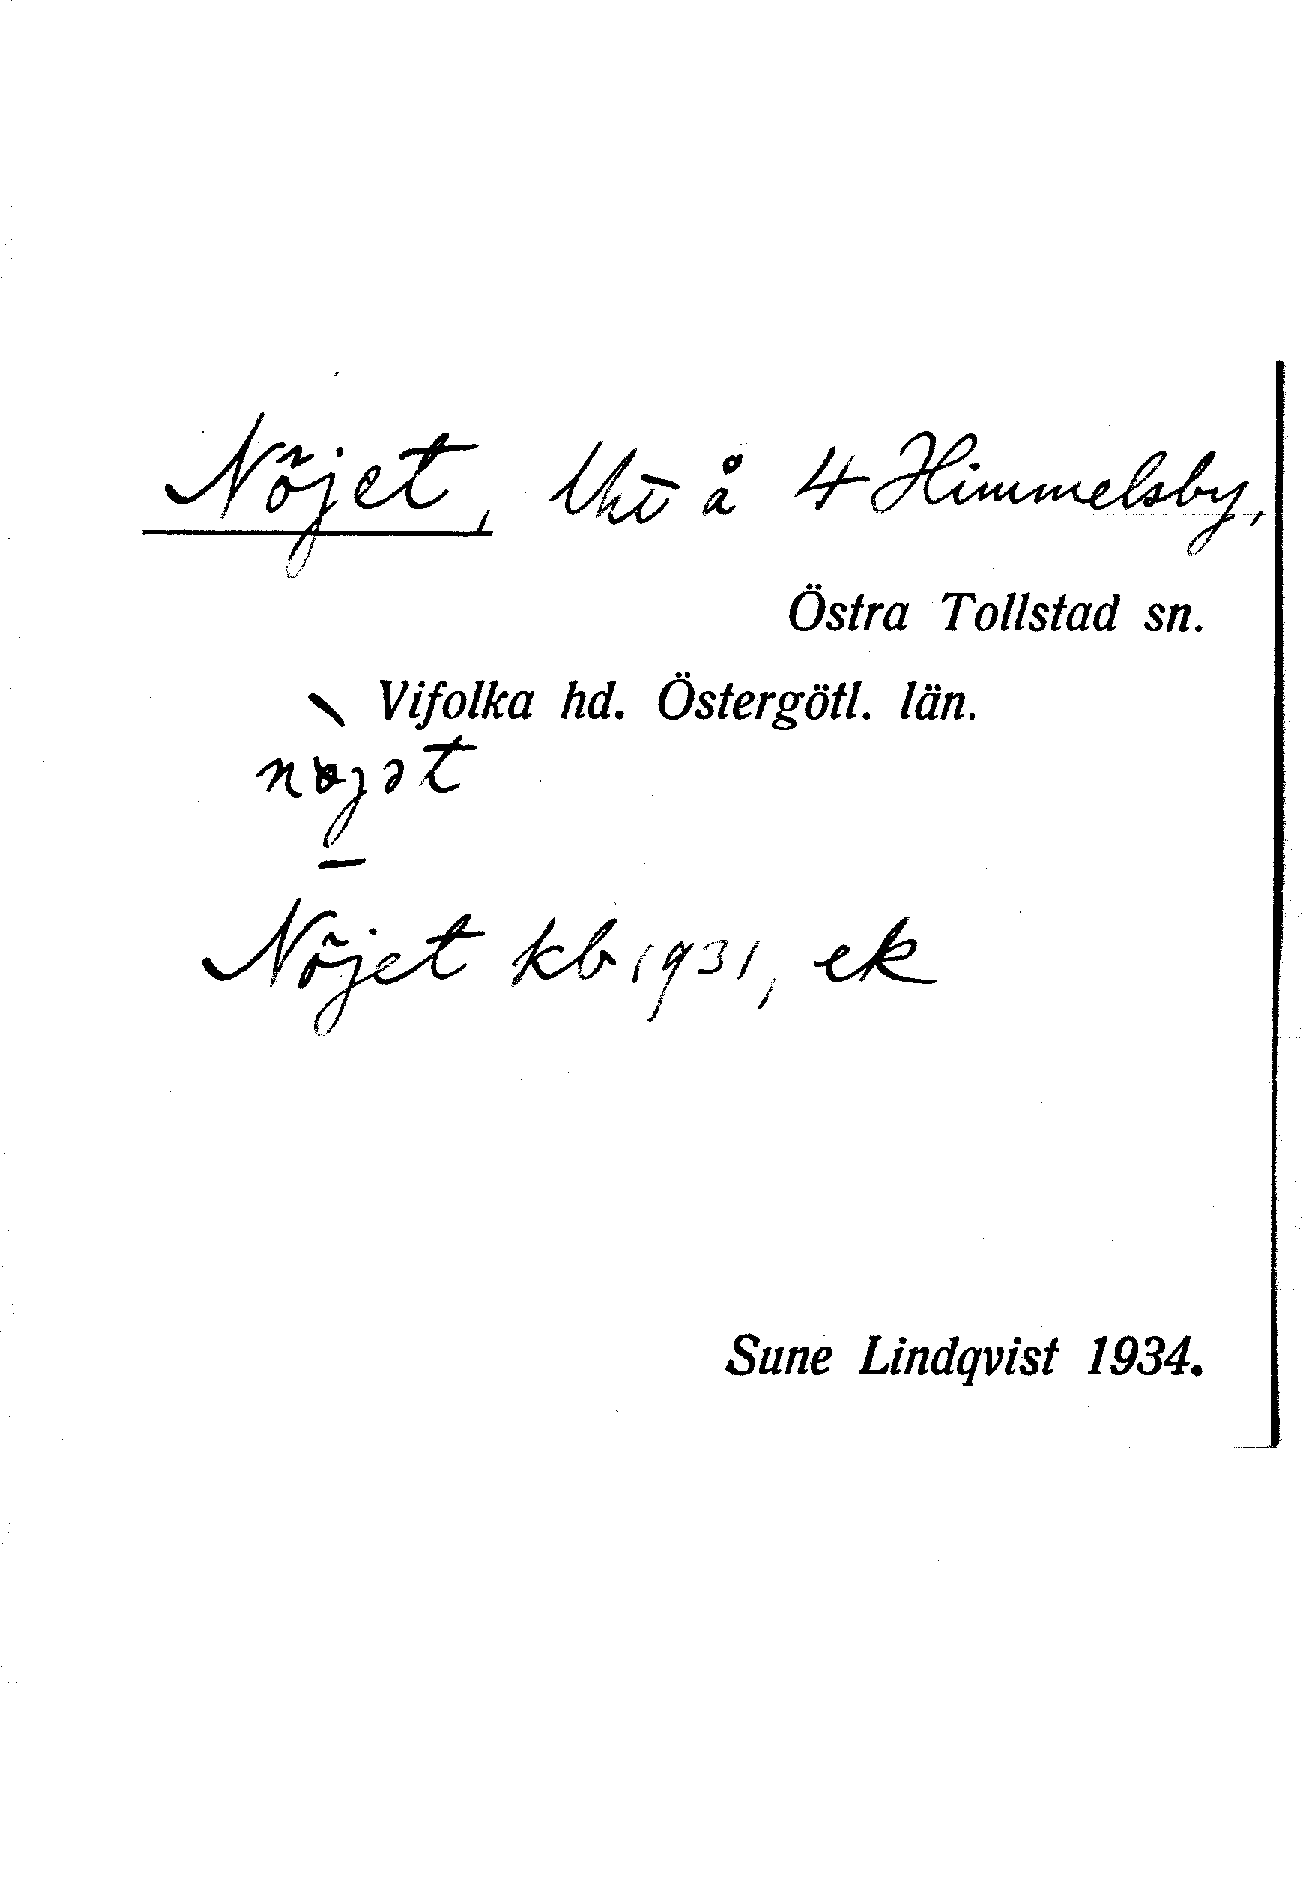 Nöjet, lht å 4 Himmelsby,
Östra Tollstad sn.
Vifolka hd. Östergötl. län.
Nöjet kb 1931, ek
Sune Lindqvist 1934.